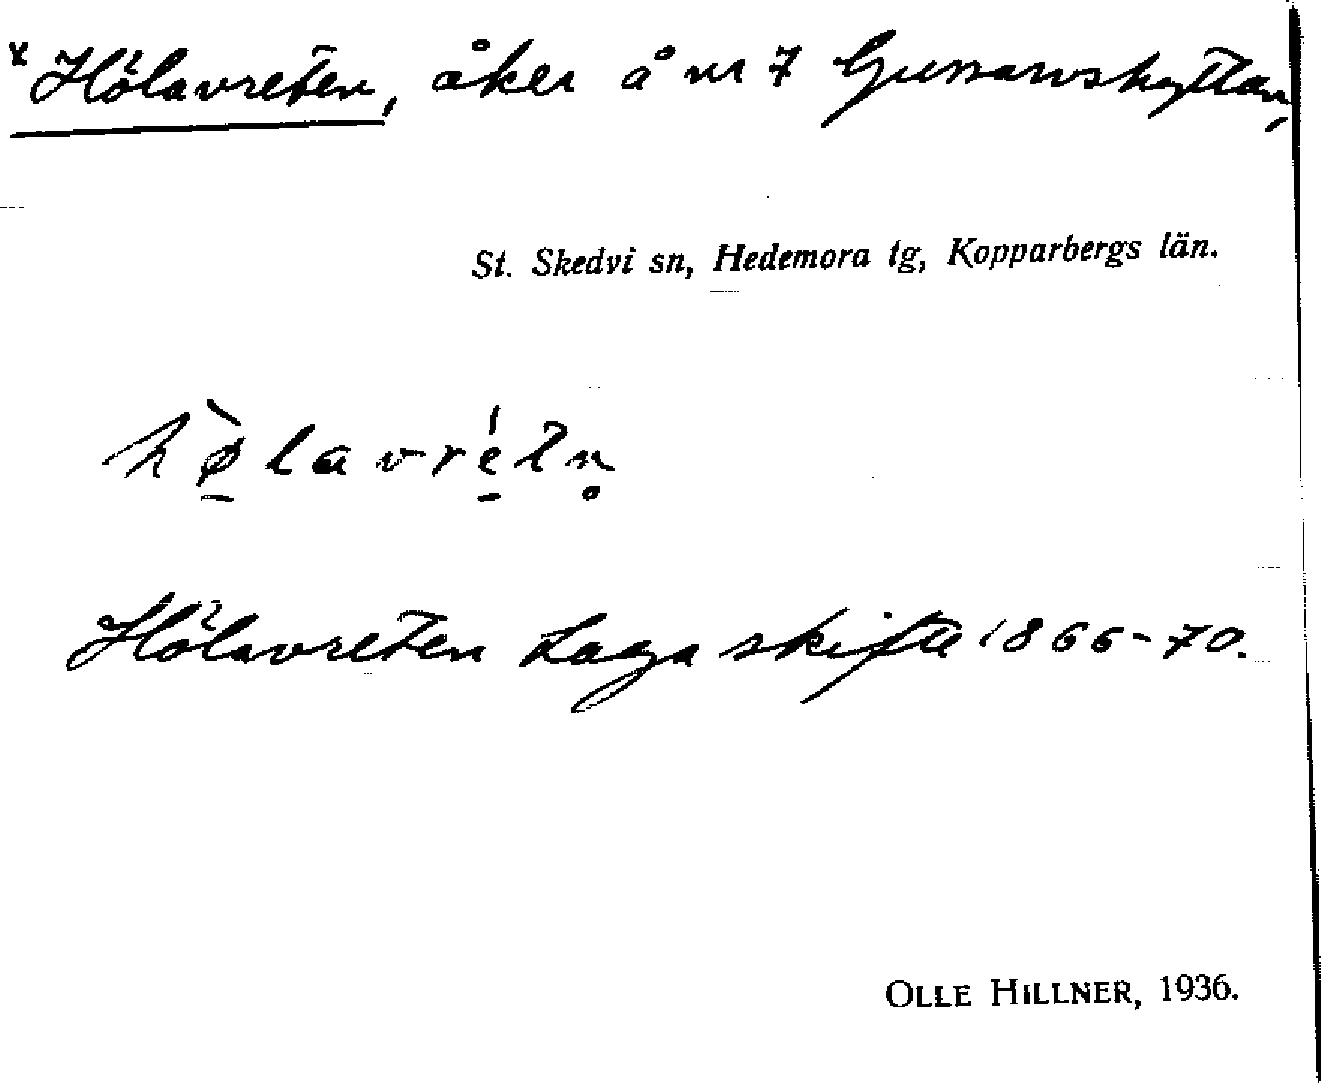 x Hölavreten, åker å nr 7 Gussarvshyttan,
St. Skedvi sn, Hedemora tg, Kopparbergs län.
hø̠̀lavré̠tn̥
Hölavreten Laga skifte 1866-70.
OLLE HILLNER, 1936.